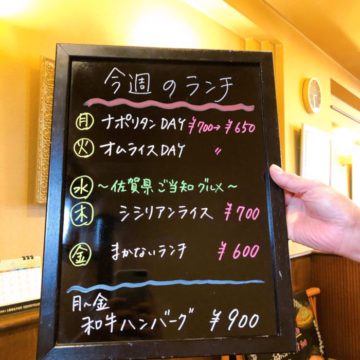 今週のランチ
月 ナポリタンDAY ¥700→¥650
火 オムライスDAY 〃
水 〜佐賀県ご当知グルメ〜
木 シシリアンライス ¥700
金 まかないランチ ¥600
月〜金
和牛ハンバーグ ¥900